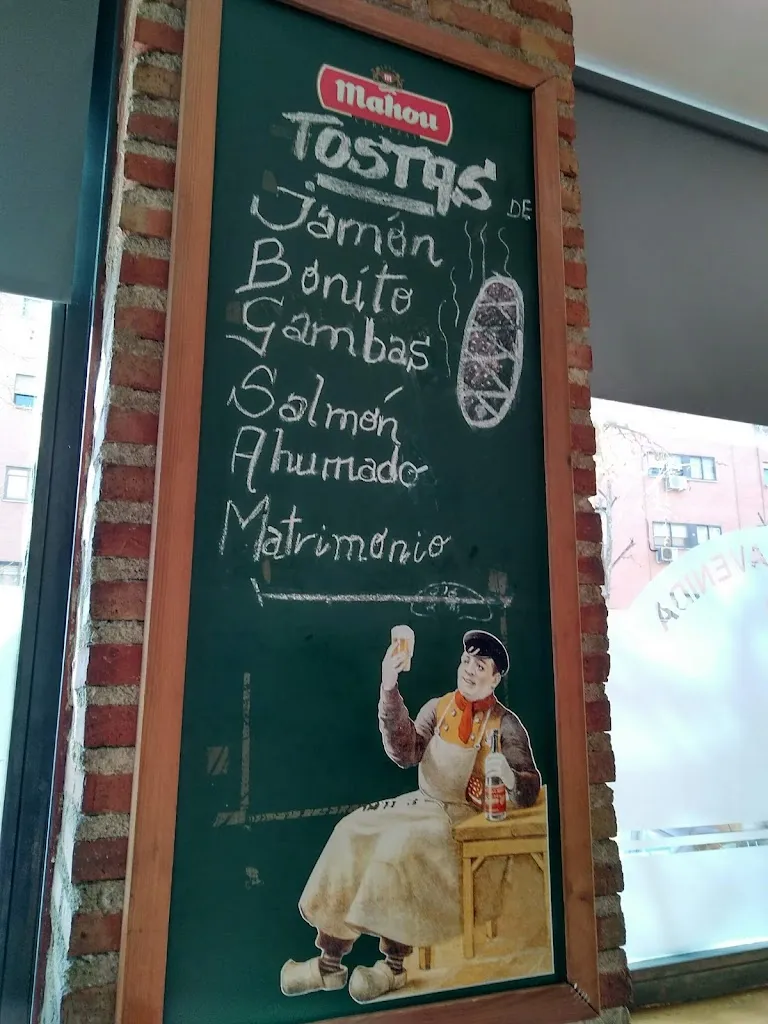 mahou
TOSTAS DE
Jamón
Bonito
Gambas
Salmón
Ahumado
Matrimonio
AVENIDA